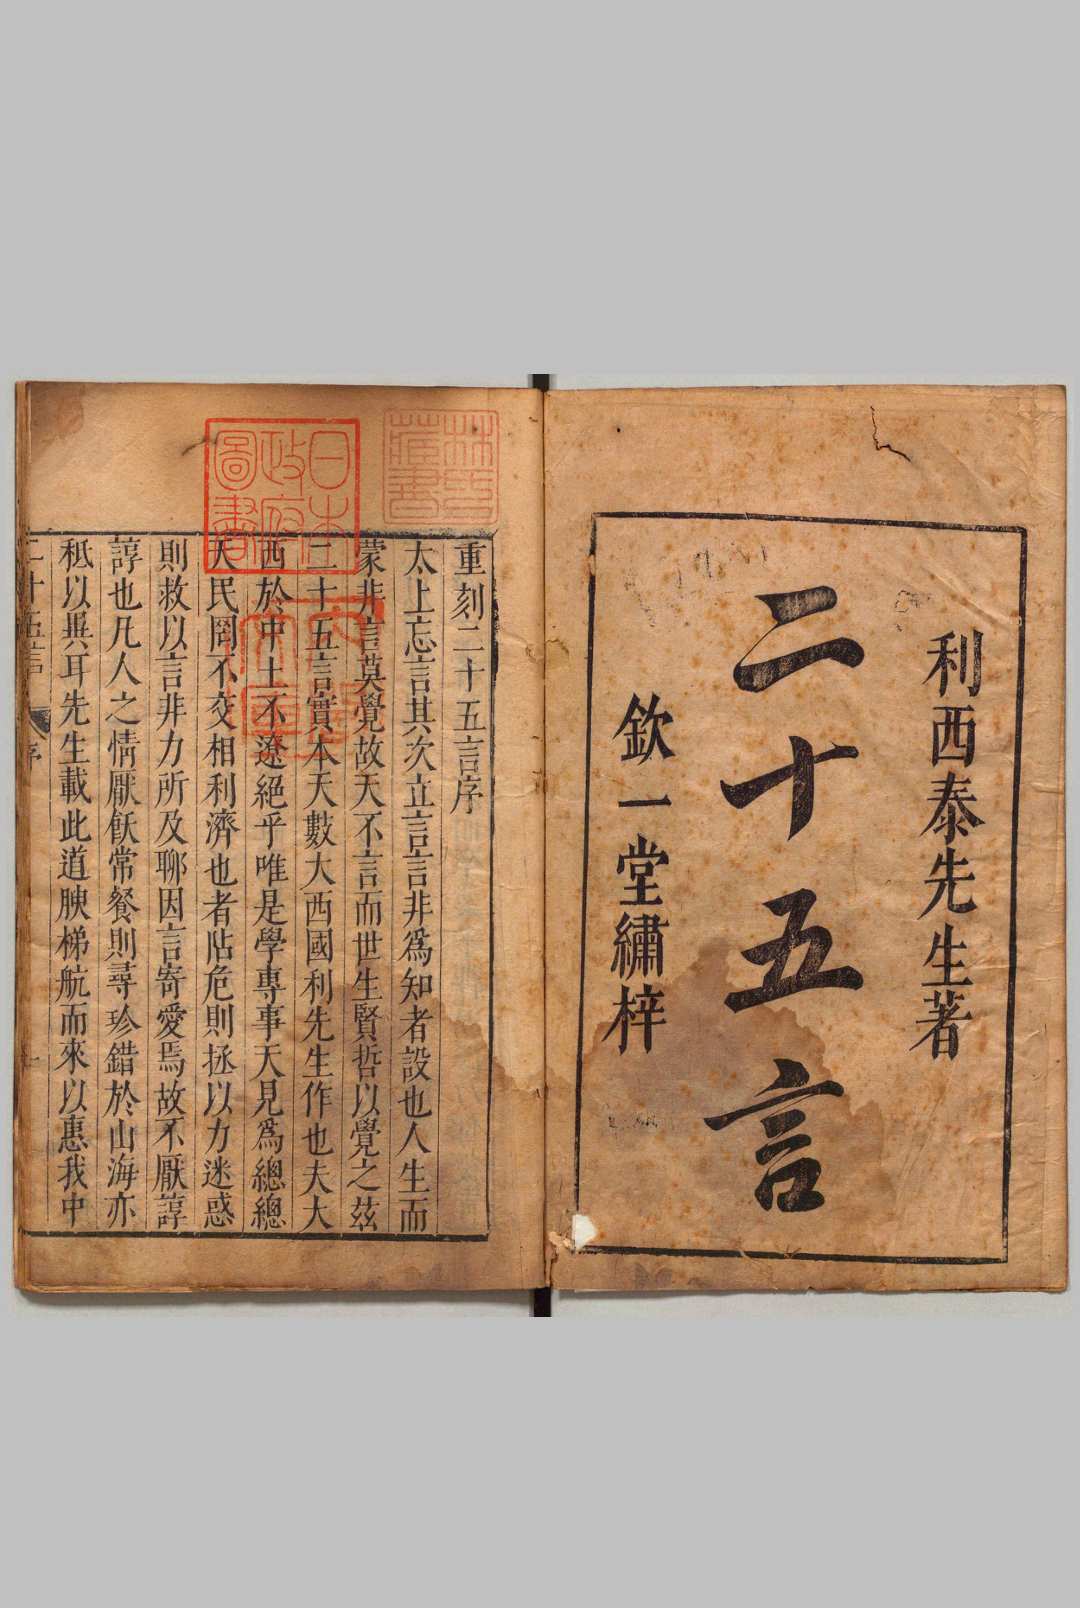 利西泰先生著
二十五言
欽一堂繡梓
重刻二十五言序
太上忘言其次立言言非爲知者設也人生而
蒙非言莫覺故天不言而世生賢哲以覺之茲
二十五言實本天數大西國利先生作也夫大
西於中土不遼絕乎唯是學專事天見爲總總
天民罔不交相利濟也者阽危則拯以力迷惑
則救以言非力所及聊因言寄愛焉故不厭諄
諄也凡人之情厭飫常餐則尋珍錯於山海亦
秪以異耳先生載此道腴梯航而來以惠我中
二十五言 序 一
林氏藏書
日本政府圖書